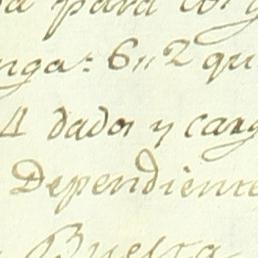 para
nga: 6,, 2 qu
4 dados y carg
Dependiente
Buelta